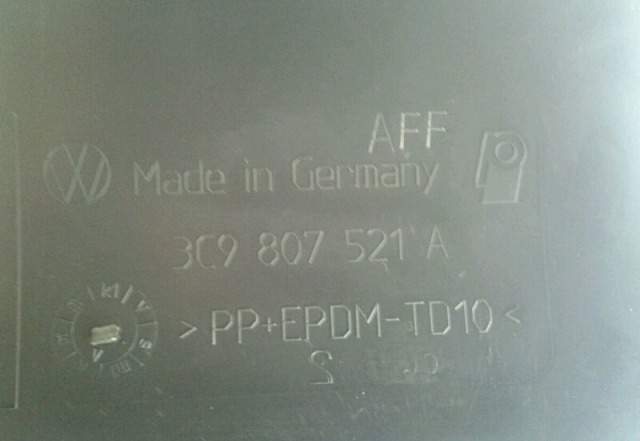 AFF
Made in Germany
3C9 807 521 A
>PP+EPDM-TD10<
2